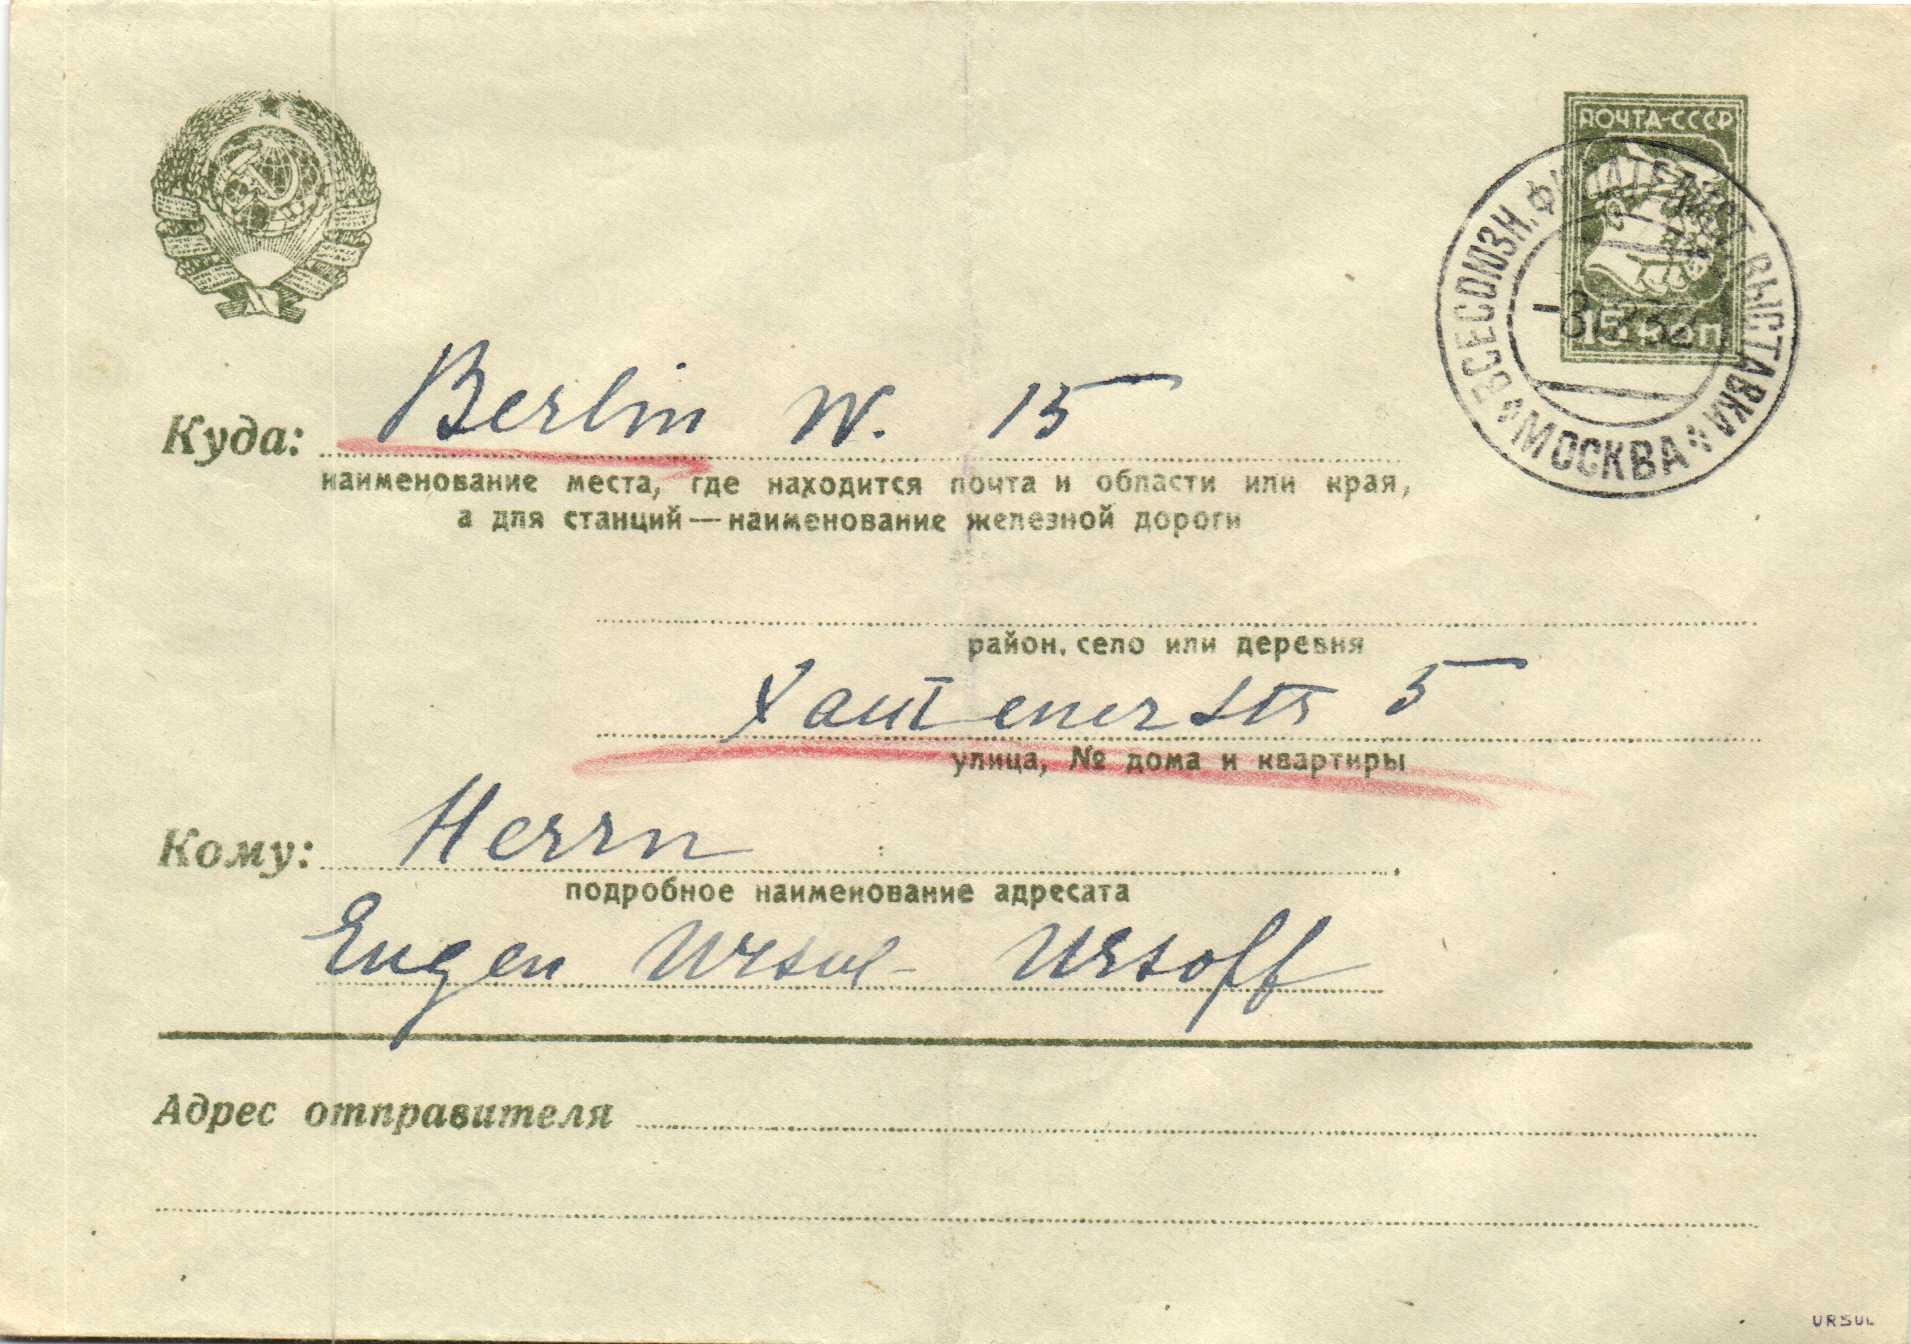 ПОЧТА-СССР
15 коп.
ВСЕСОЮЗН. ФИЛАТЕЛИСТ. ВЫСТАВКА
МОСКВА
Куда: Berlin W. 15
наименование места, где находится почта и области или края,
а для станций—наименование железной дороги
район, село или деревня
Xantenerstr 5
улица, № дома и квартиры
Кому: Herrn
подробное наименование адресата
Eugen Ursul- Ursoff
Адрес отправителя
URSUL